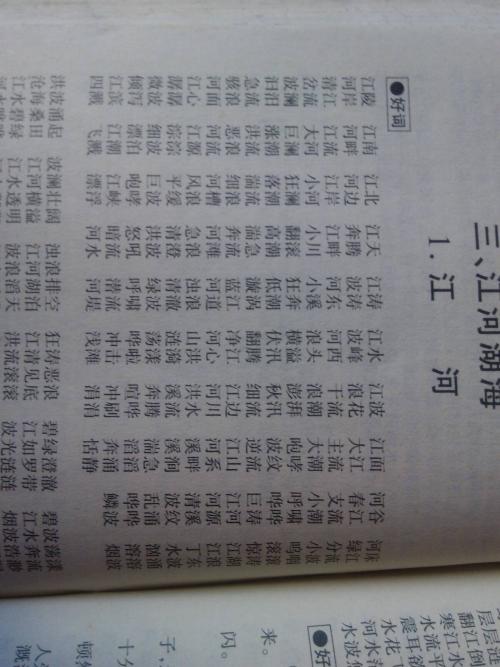 三、江河湖海
1.江 河
●好词
江陵 江南 江北 江天 江涛 江水 江波 江面 河谷 河床
河岸 河畔 河边 奔腾 波涛 波峰 浪花 大江 春江 绿江
清江 江流 江岸 江畔 河东 河西 干流 主流 支流 分流
岔流 大河 小河 小川 小溪 浪头 浪潮 大潮 小潮 小波
波澜 巨澜 狂澜 翻滚 狂奔 横溢 澎湃 咆哮 呼啸 呜咽
汩汩 涨潮 落潮 高潮 低潮 伏汛 秋汛 波纹 哗哗 滚滚
急流 洪流 湍流 湍急 漩涡 翻腾 细流 逆流 巨涛 惊涛
骇浪 恶浪 细浪 奔流 蓝江 净江 江边 江山 江河 江湖
河面 河流 河槽 河滩 河道 河心 河川 河系 河源 江浪
江心 江源 风浪 急浪 浊浪 山洪 洪水 溪畔 清溪 丁东
潺潺 淙淙 平缓 清澄 清澈 涟漪 溪流 溪涧 波纹 水波
微波 细波 巨波 洪波 绿波 荡漾 奔腾 湍急 乱涌 汹涌
倾泻 漂泊 咆哮 怒吼 呼啸 哗啦 喧哗 滔滔 哗哗 溶溶
江滨 江潮 江峡 暗流 潜流 冲击 冲刷 奔涌 鳞波 烟波
四溅 飞溅 漂浮 河水 河堤 浅滩 涓涓 恬静
洪波涌起 波澜壮阔 浊浪排空 狂涛恶浪 碧绿澄澈 碧波荡漾
沧海桑田 江河横溢 江河湖泊 江清见底 江如罗带 江水奔流
江水碧绿 江水透明 波浪滔天 洪流滚滚 波光涟涟 烟波浩渺